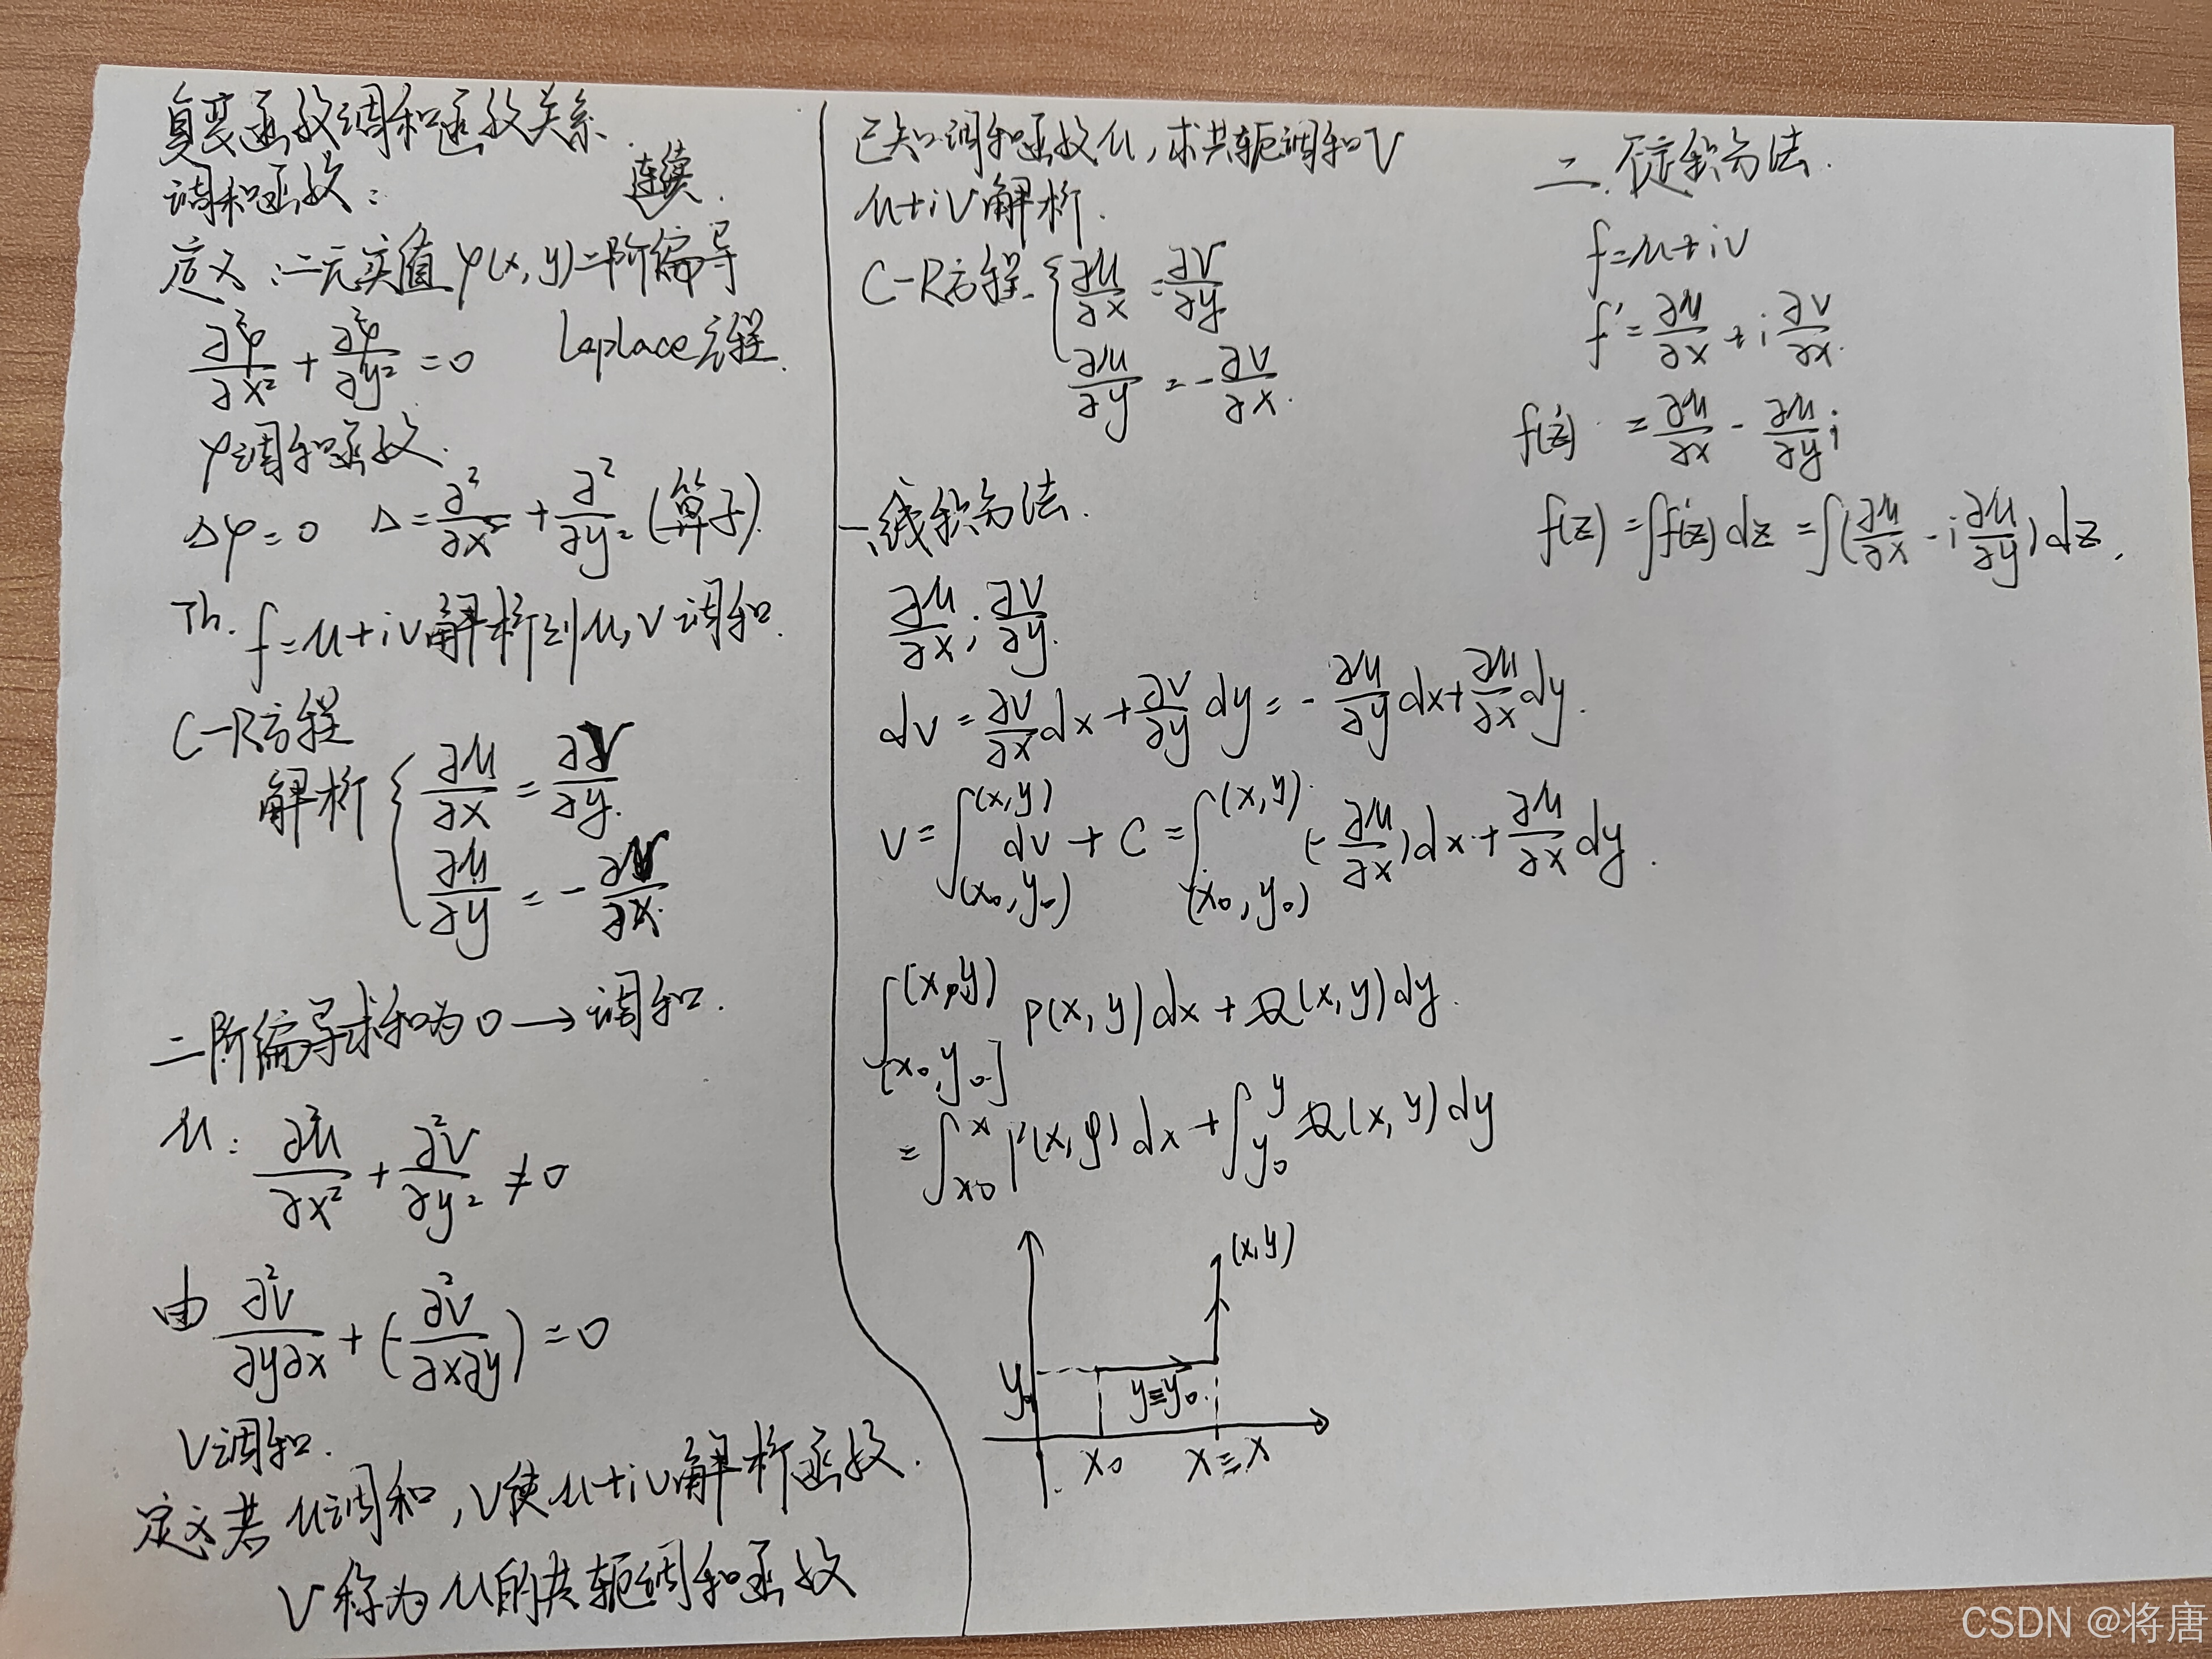 复变函数调和函数关系.
调和函数:
连续.
定义:二元实值φ(x,y)二阶偏导
∂²φ/∂x² + ∂²φ/∂y² = 0 Laplace方程.
φ调和函数.
Δφ=0 Δ=∂²/∂x² + ∂²/∂y² (算子).
Th. f=u+iv解析到u,v调和.
C-R方程
解析 { ∂u/∂x = ∂v/∂y.
∂u/∂y = -∂v/∂x.
二阶偏导求和为0→调和.
u: ∂²u/∂x² + ∂²v/∂y² ≠0
由 ∂²v/∂y∂x + (-∂²v/∂x∂y) =0
V调和.
定义若u调和,v使u+iv解析函数.
V称为u的共轭调和函数
已知调和函数u,求共轭调和V
u+iv解析.
C-R方程. { ∂u/∂x = ∂v/∂y
∂u/∂y = -∂v/∂x.
一、线积分法.
∂u/∂x; ∂v/∂y.
dv = ∂v/∂x dx + ∂v/∂y dy = -∂u/∂y dx + ∂u/∂x dy.
v = ∫(x₀,y₀)^(x,y) dv + C = ∫(x₀,y₀)^(x,y) (-∂u/∂x)dx + ∂u/∂x dy.
∫(x₀,y₀)^(x,y) P(x,y)dx + Q(x,y)dy.
= ∫x₀^x P(x,y)dx + ∫y₀^y Q(x,y)dy
(x,y)
y₀
y≡y₀.
x₀ x≡x
二.不定积分法.
f=u+iv
f'=∂u/∂x + i ∂v/∂x.
f'(z) = ∂u/∂x - ∂u/∂y i
f(z) = ∫f'(z)dz = ∫(∂u/∂x - i ∂u/∂y)dz.
CSDN @将唐